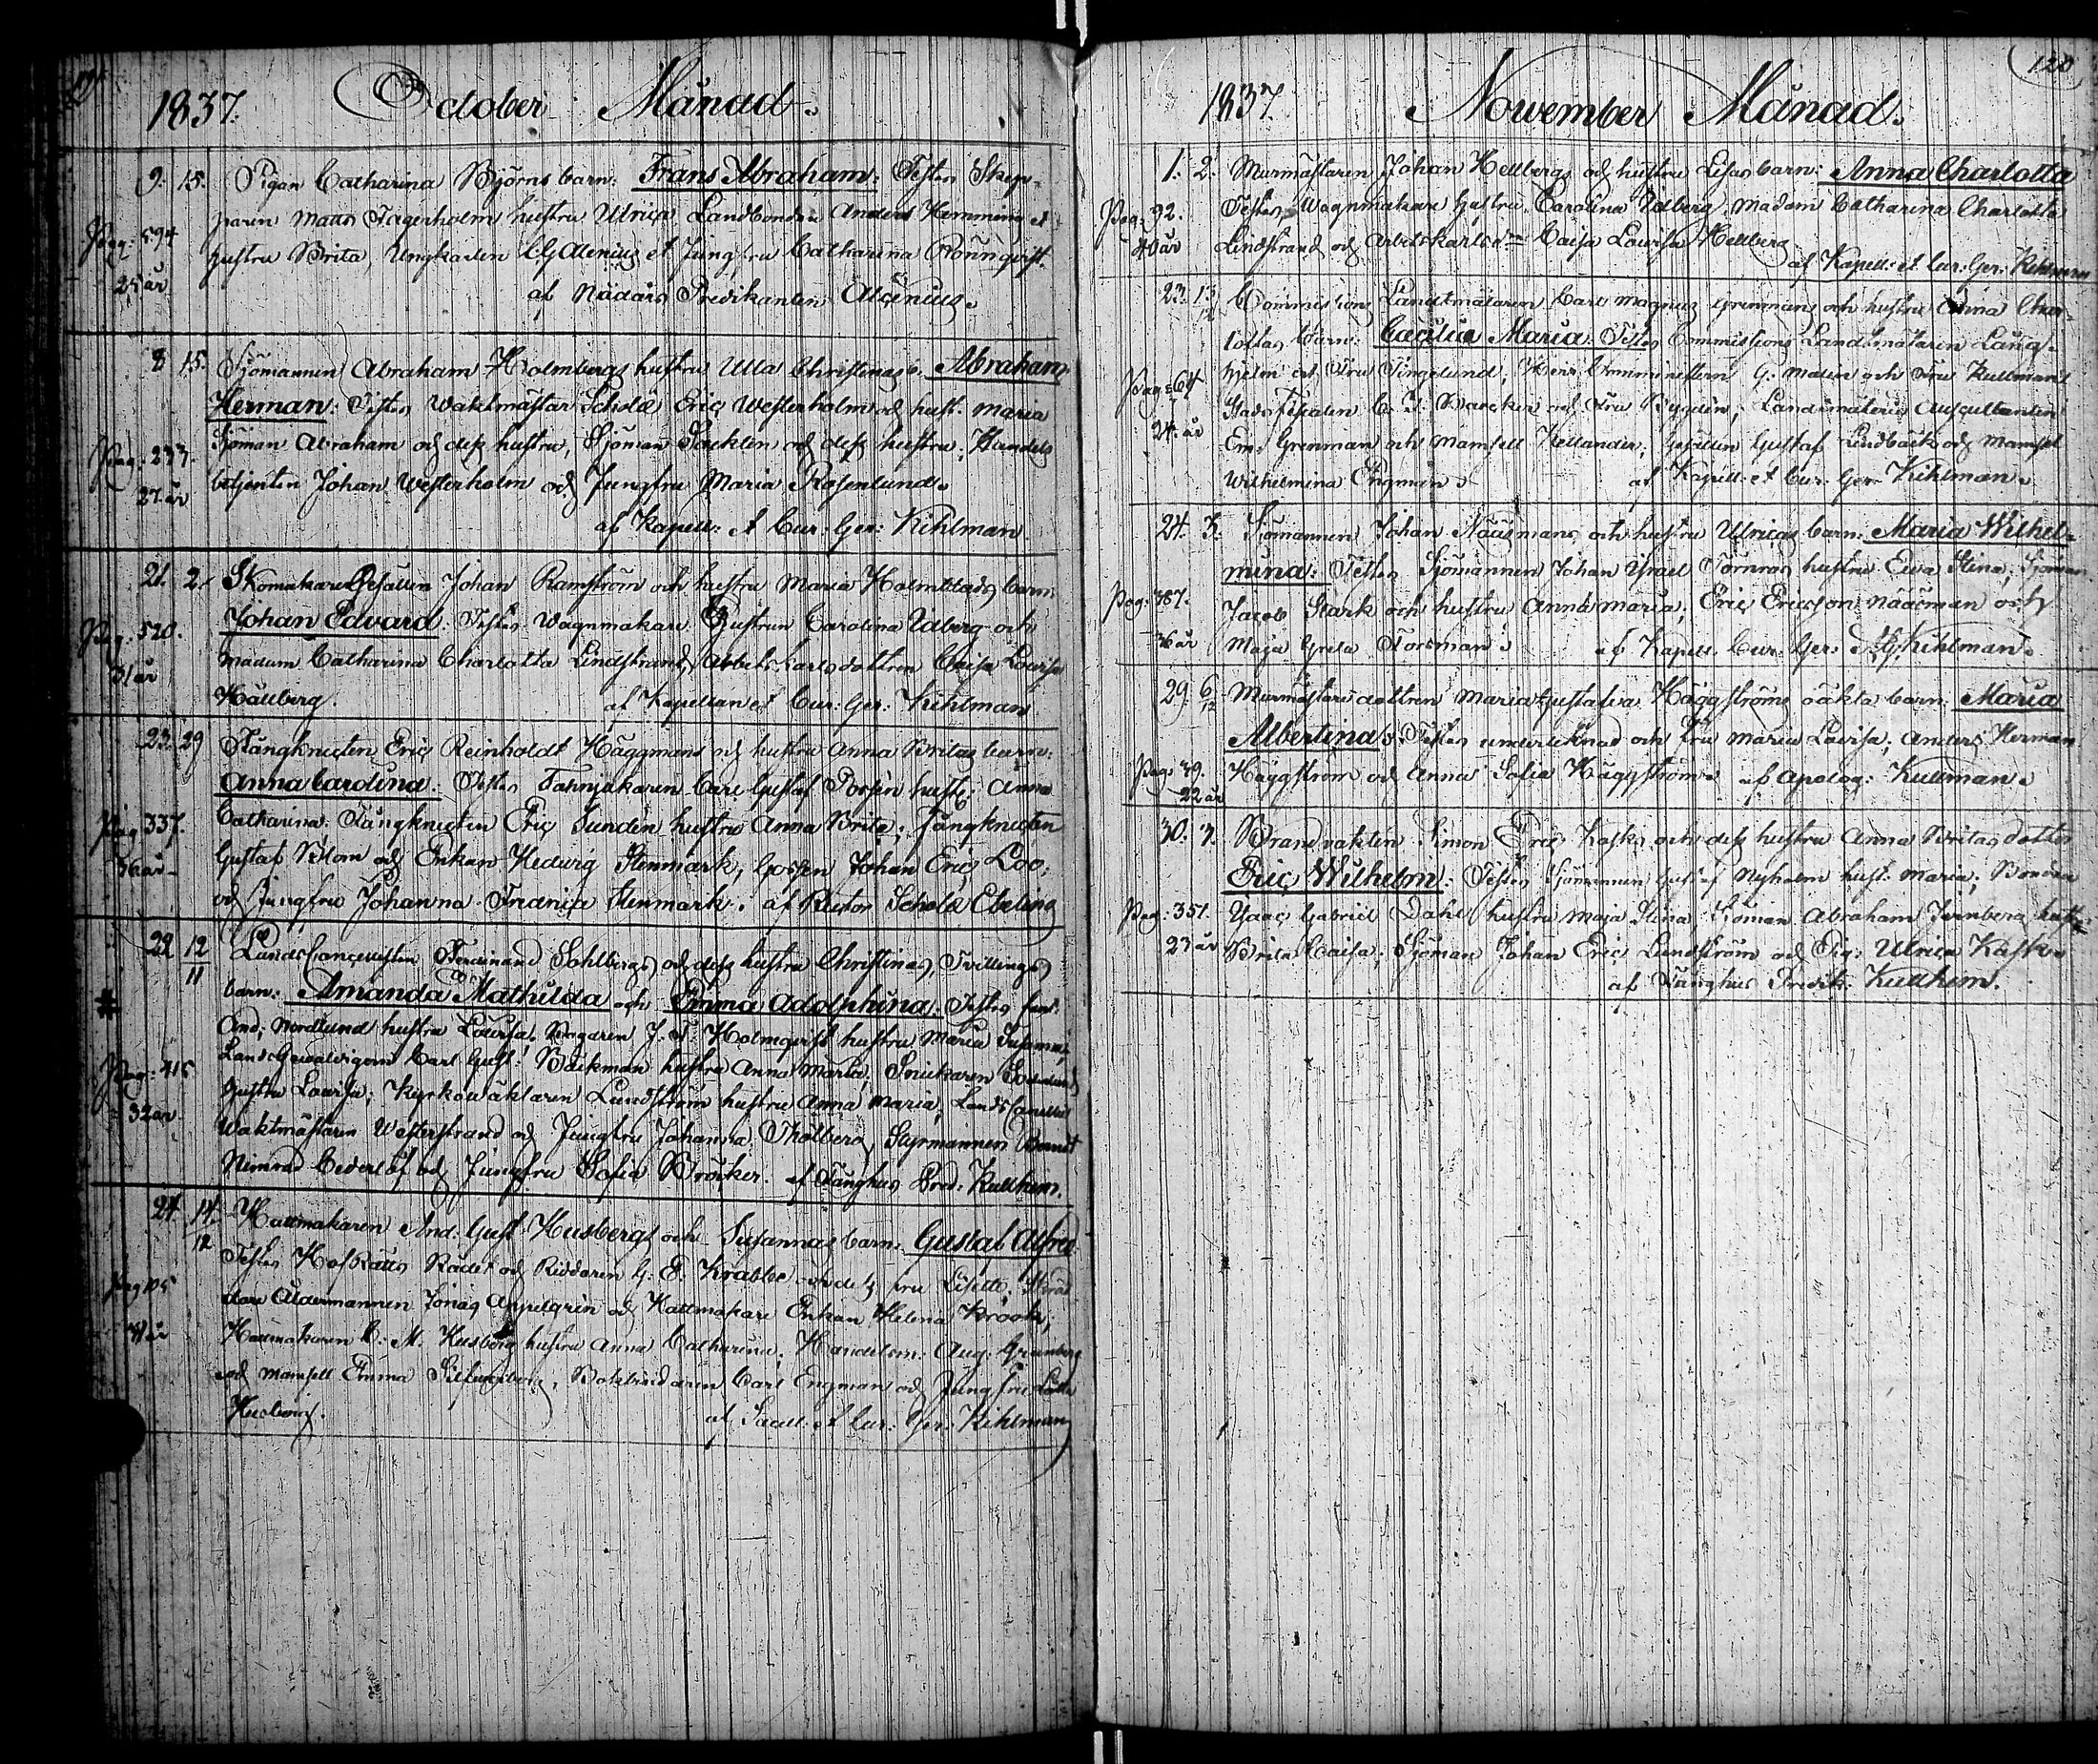 1837. October Månad.
9. 15. Pigan Catharina Björns barn: Frans Abraham: Testes Skep-
paren Matts Fagerholm hustru Ulrica Landbonden Anders Hemming et
Pag: 594 hustru Brita, Ungkarlen et Jungfru Catharina Rönnqvist
25 år af Nådårs Predikanten Alcenius.
8 15. Sjömannen Abraham Holmbergs hustru Ulla Christinas b. Abraham
Herman: Testes Waktmästar Eric Westerholm och hust. Maria
Pag: 233. Sjöman Abraham och dess hustru, Sjöman och dess hustru, Handels
27 år betjenten Johan Westerholm och Jungfru Maria Rosenlund.
af Kapell: et Cur: Ger: Kihlman
21. 2. Skomakare Gesällen Johan Ramström och hustru Maria Holmblads barn
Johan Edvard. Testes Wagnmakare Hustrun Carolina Udberg och
Pag: 520. Madam Catharina Charlotta Lindstrand, Arbets karls dottren Caisa Lovisa
31 år Hällberg. af Kapellan et Cur: Ger: Kihlman
23. 29 Fångknecten Eric Reinholdt Häggmans och hustru Anna Britas barn:
Anna Carolina. Testes Carl Gustaf hustr: Anna
Pag 337. Catharina; Fångknecten Eric Sundén hustru Anna Brita; Fångknecten
36 år Gustaf Blom och Enkan Hedvig Stenmark; Gossen Johan Eric Loo;
och Jungfru Johanna Fredrica Stenmark. af Rector Scholæ Ebeling
22 12 Ferdinand Sohlbergs och dess hustru Christinas, Tvillings
11
barn: Amanda Mathilda och Emma Adolphina. Testes
And: Nordlund hustru Lovisa, J. F. Holmqvist hustru Maria Susanna,
Pag: 415 Carl Gust: Bäckman hustru Anna Maria, Snickaren
32 år hustru Lovisa; Kyrkowäktaren Lundström hustru Anna Maria,
Waktmästaren Westerstrand och Jungfru Johanna Thölberg, Styrmannen
Nimrod Cederlöf och Jungfru Sofia Bröcker. af Fånghus Pred: Kullhem.
24 14 Hattmakaren And: Gust Husbergs och Susannas barn. Gustaf Alfred
12
Testes HofRätts Rådet och Riddaren G: E. Krabbe fru Lisette,
Pag 105 Åldermannen Jonas Appelgrén och Hattmakare Enkan Helena Krook;
Hattmakaren C: M. Husberg hustru Anna Catharina, Handelsm: Aug: Grönberg
och Mamsell Emma, Bokbindaren Carl Engman och Jungfru Lotta
Husberg. af Sacell: et Cur: Ger: Kihlman
120
1837. November Månad.
1. 2. Murmästaren Johan Hellbergs och hustru Lisas barn: Anna Charlotta
Pag: 92. Testes Wagnmakare hustru Carolina Udberg, Madam Catharina Charlotta
40 år Lindstrand och Arbetskarlsd:n Caisa Lovisa Hellberg
af Kapell: et Cur: Ger: Kihlman
23. 13 Commissions Landtmätaren Carl Magnus Grenmans och hustru Anna Char-
12
lottas barn: Cæcilia Maria. Testes Commissions Landtmätaren Lång-
hjelm och Fru Tingelund, Herr G: Malen och Fru Kullman
Pag: 64 Stads Fiskalen C. J. och Fru Bygdén; Landtmäteri Auscultanten
24 år Em: Grenman och Mamsell Hellander; Gesällen Gustaf Lindbäck och Mamsell
Wilhelmina Engman. af Kapell: et Cur: Ger: Kihlman.
24. 3. Sjömannen Johan Näsmans och hustru Ulricas barn: Maria Wilhel-
mina: Testes Sjömannen Johan Israel Törnros hustru Ewa Stina; Sjöman
Pag: 387. Jacob Stark och hustru Anna Maria; Eric Ericsson Näsman och
36 år Maja Greta Forsman. af Kapell. Cur: Ger: Kihlman.
29. 6 Murmästaredottren Maria Gustafva Häggströms oäkta barn: Maria
12
Albertina. Testes undertecknad och fru Maria Lovisa; Anders Herman
Pag: 79. Häggström och Anna Sofia Häggström. af Apolog: Kullman.
22 år
30. 7. Brandvakten Simon Eric Kasks och dess hustru Anna Britas
Eric Wilhelm: Testes Sjömannen Gustaf Nyholm hust: Maria; Bonden
Pag: 351. Isaac Gabriel Dahl hustru Maja Stina Sjöman Abraham
23 år Brita Caisa; Sjöman Johan Eric Lundström och Pig: Ulrica Kask.
af Fånghus Predik. Kullhem.